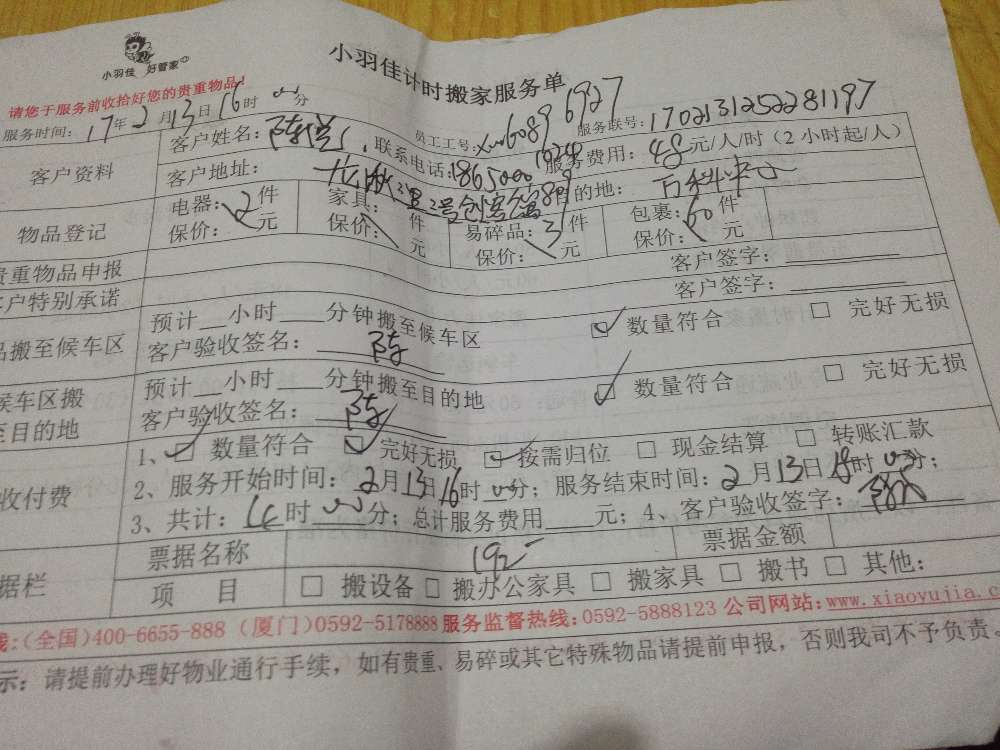 小羽佳 好管家
小羽佳计时搬家服务单
请您于服务前收拾好您的贵重物品!
服务时间: 17年2月13日16时 分
员工工号: 60896927 服务联号: 1702131252281197
客户资料
客户姓名: 陈 联系电话: 服务费用: 48元/人/时 (2小时起/人)
客户地址: 目的地:
物品登记
电器: 2件 家具: 件 易碎品: 3件 包裹: 60件
保价: 元 保价: 元 保价: 元 保价: 元
贵重物品申报 客户签字:
客户特别承诺 客户签字:
品搬至候车区
预计 小时 分钟搬至候车区 ☑ 数量符合 □ 完好无损
客户验收签名: 陈
候车区搬至目的地
预计 小时 分钟搬至目的地 ☑ 数量符合 □ 完好无损
客户验收签名: 陈
收付费
1、☑ 数量符合 ☑ 完好无损 ☑ 按需归位 □ 现金结算 □ 转账汇款
2、服务开始时间: 2月13日16时00分; 服务结束时间: 2月13日18时00分;
3、共计: 时 分; 总计服务费用 元; 4、客户验收签字:
据栏
票据名称 192- 票据金额
项 目 □ 搬设备 □ 搬办公家具 □ 搬家具 □ 搬书 □ 其他:
线:(全国)400-6655-888 (厦门)0592-5178888 服务监督热线:0592-5888123 公司网站:www.xiaoyujia.c
示: 请提前办理好物业通行手续, 如有贵重、易碎或其它特殊物品请提前申报, 否则我司不予负责。